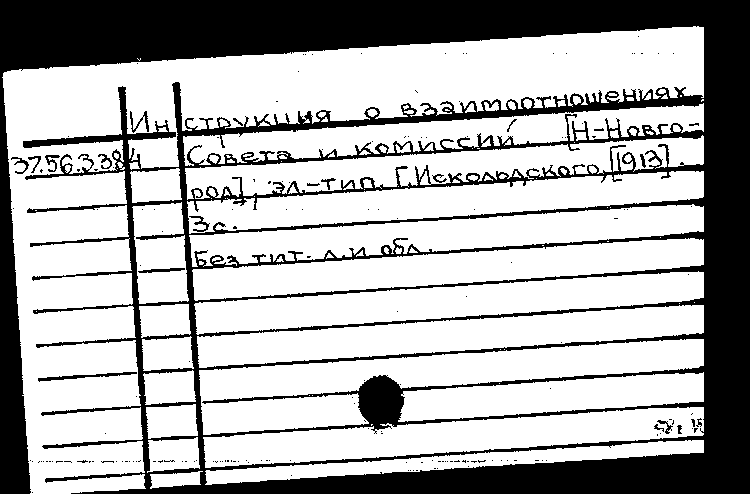 Инструкция о взаимоотношениях
37.56.3.384 Совета и комиссий. [Н-Новго-
род], эл.-тип. Г.Искольдского, [1913].
3с.
Без тит. л. и обл.